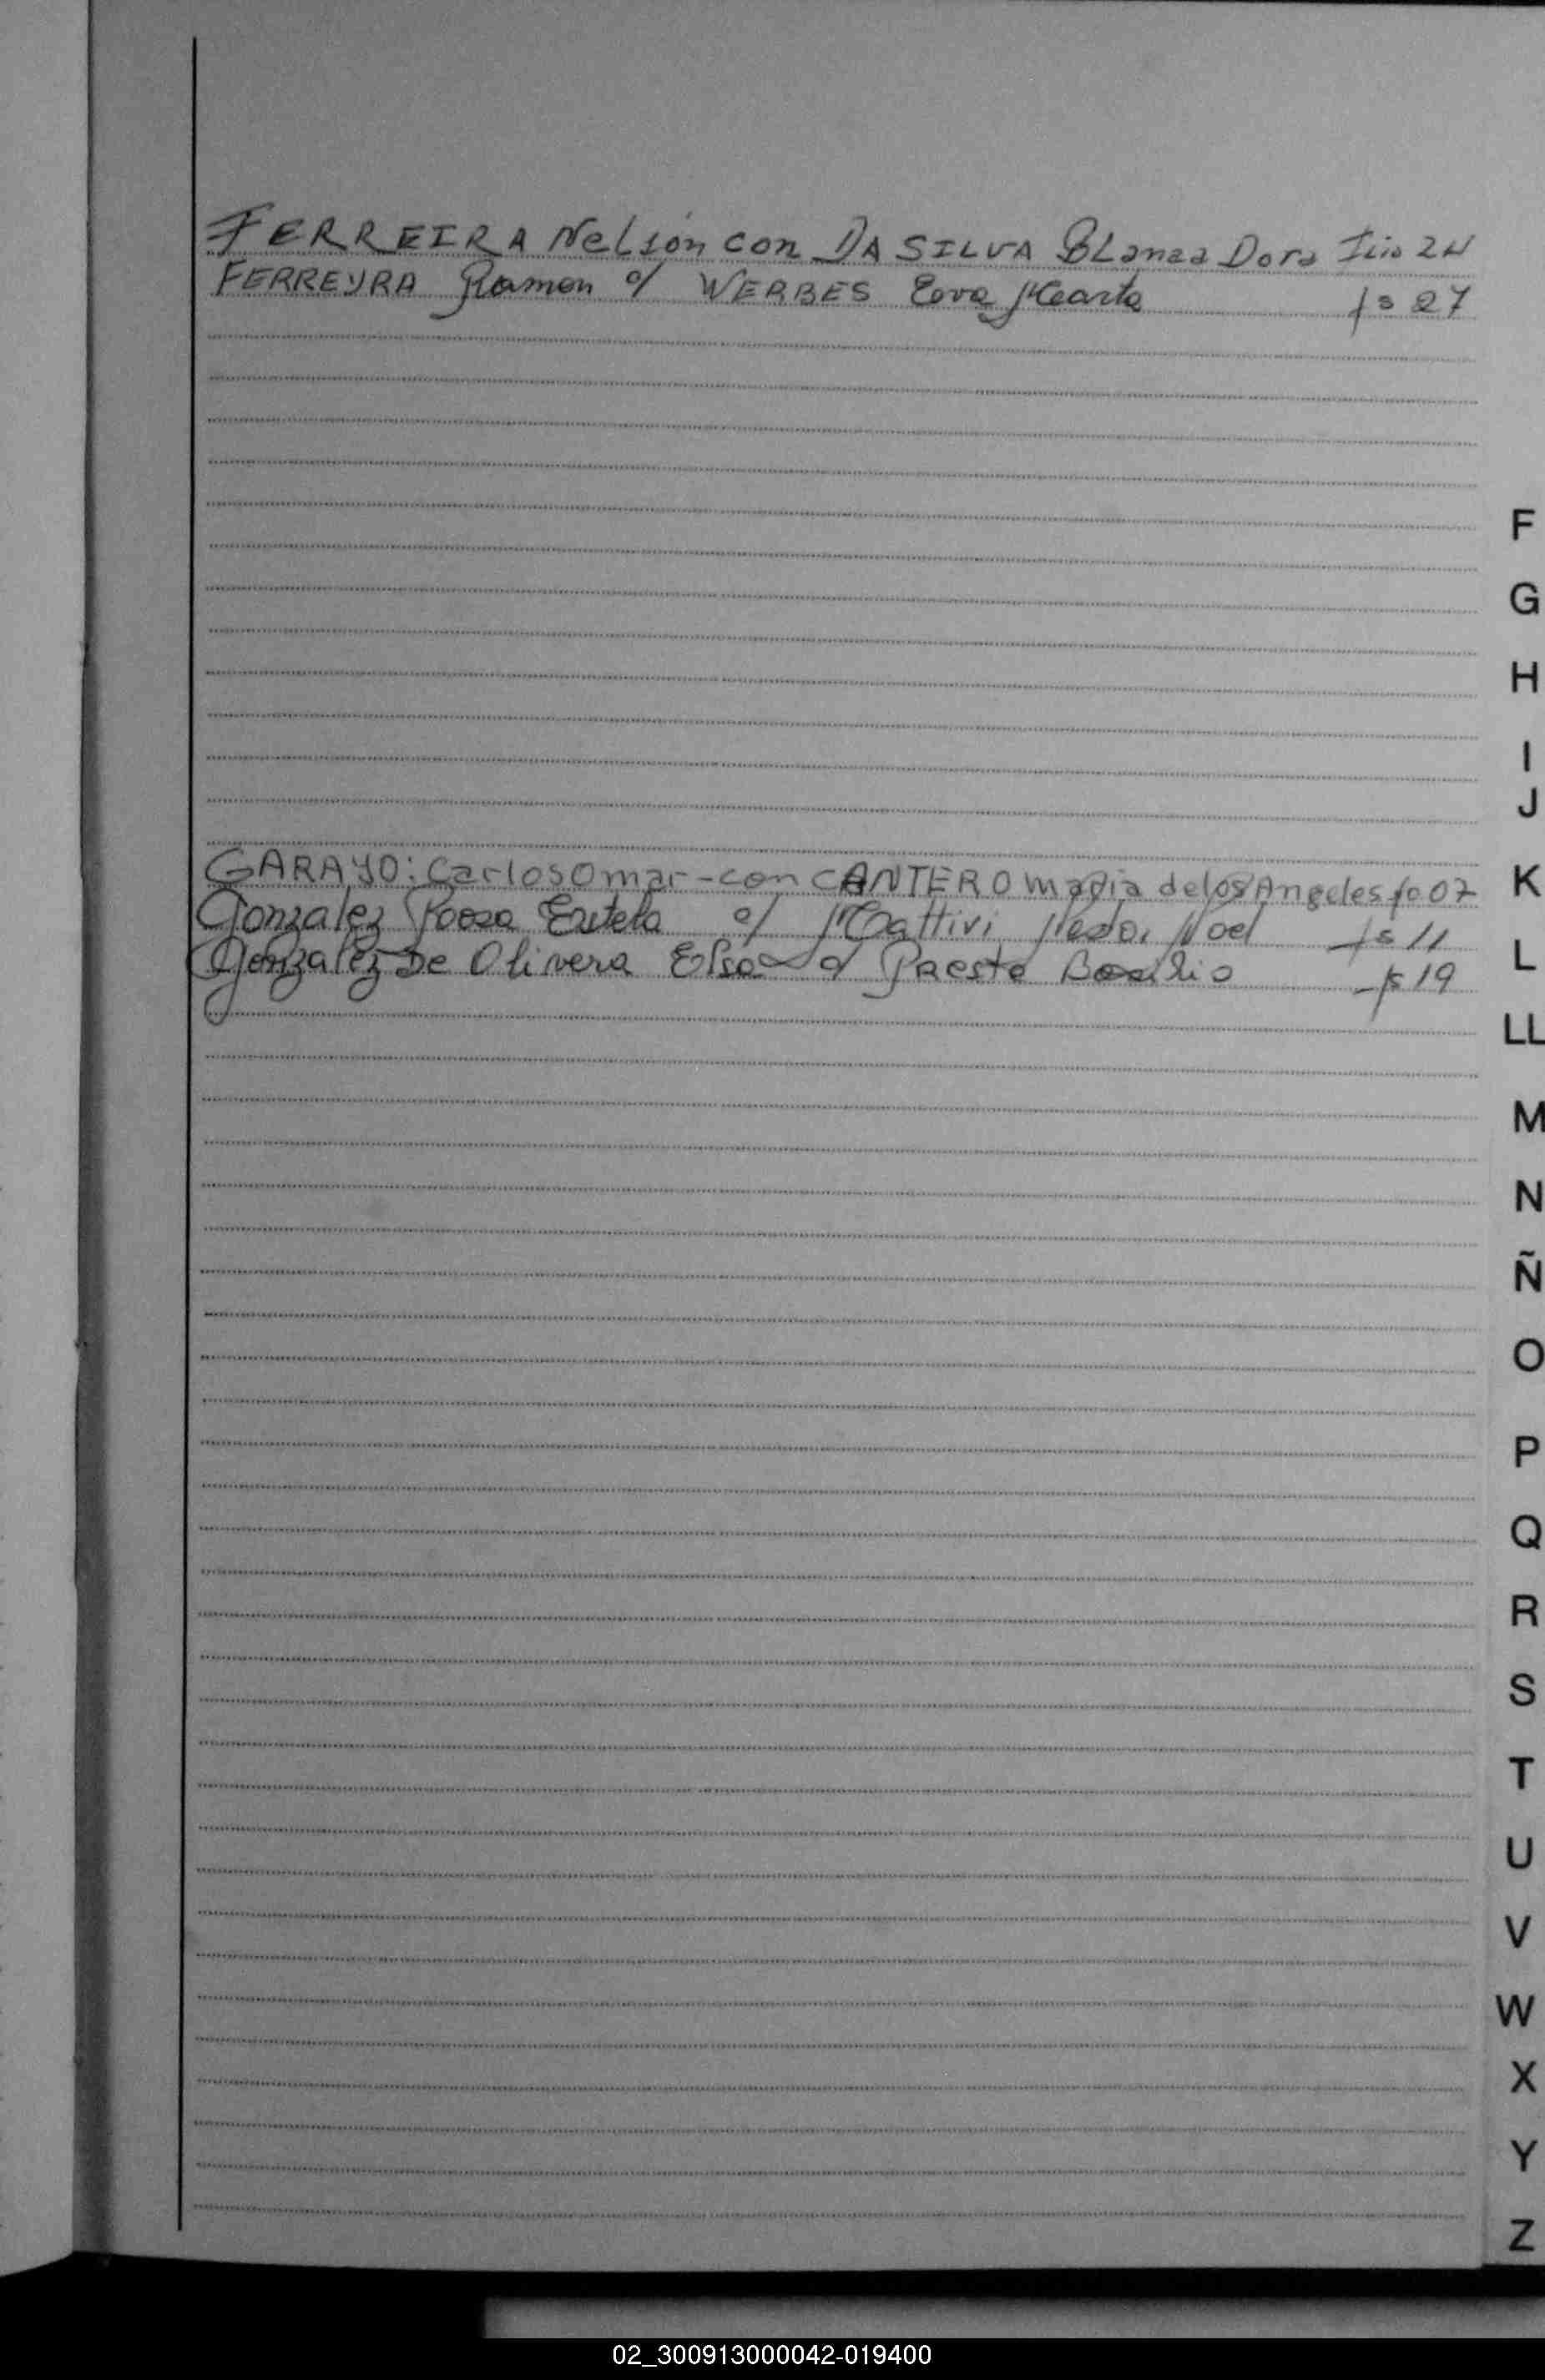 FERREIRA Nelson con DA SILVA BLanca Dora 24
FERREYRA Ramon c/ WERBES Marta fs 27
GARAYO: Carlos Omar - con CANTERO maria de los Angeles fo 07
Gonzalez Rossa Estela c/ Mattivi Noel fs 11
Gonzalez De Olivera Elsa c/ Preste Basilio fs 19
F
G
H
I
J
K
L
LL
M
N
Ñ
O
P
Q
R
S
T
U
V
W
X
Y
Z
02_300913000042-019400